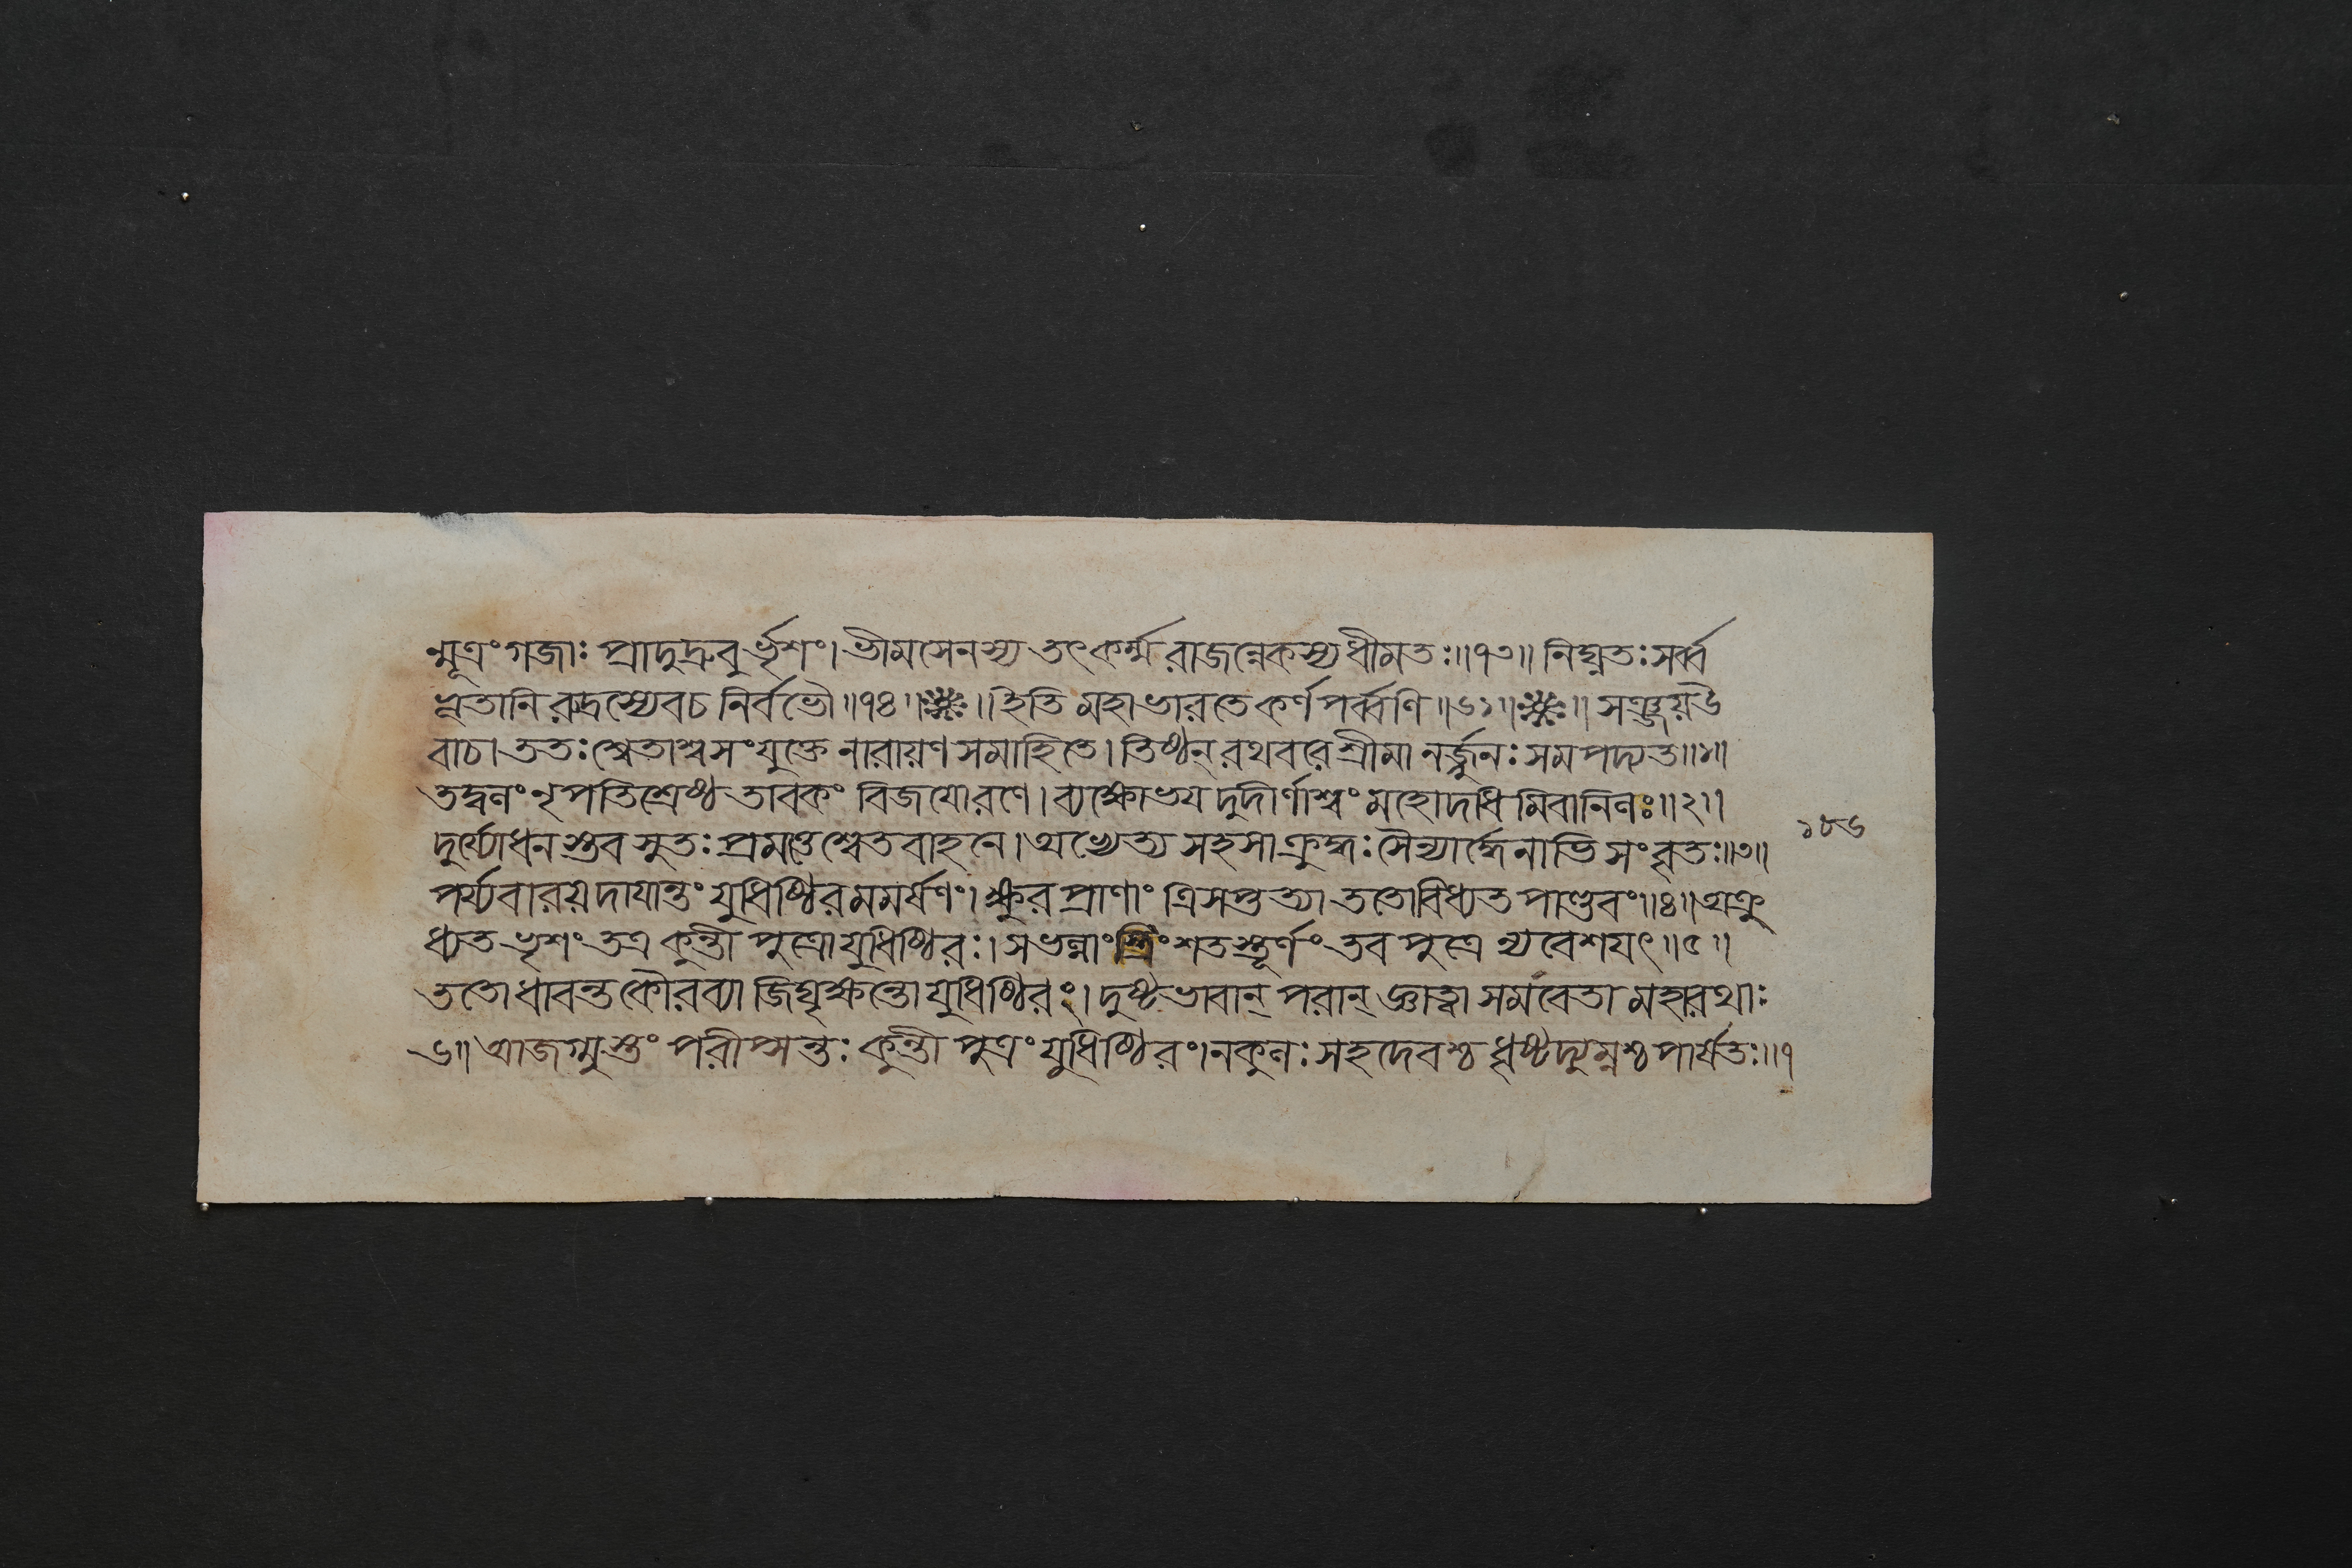 ন্মূত্রং গজাঃ প্রাদুদ্রুবুর্ভৃশং। ভীমসেনস্য তৎকর্ম্ম রাজন্নেকস্য ধীমতঃ॥৭৩॥ নিঘ্নতঃ সর্ব্ব
ভূতানি রুদ্রস্যেব চ নির্বভৌ॥৭৪॥❋॥ ইতি মহাভারতে কর্ণপর্ব্বণি॥৬১॥❋॥ সঞ্জয় উ
বাচ। ততঃ শ্বেতাশ্বসংযুক্তে নারায়ণসমাহিতে। তিষ্ঠন্ রথবরে শ্রীমানর্জ্জুনঃ সমপদ্যত॥১॥
তদ্বলং নৃপতিশ্রেষ্ঠ তাবকং বিজয়োরণে। ব্যক্ষোভয়দুদীর্ণাশ্বং মহোদধিমিবানিলঃ॥২॥
দুর্য্যোধনস্তব সুতঃ প্রমত্তে শ্বেতবাহনে। অভ্যেত্য সহসা ক্রুদ্ধঃ সৈন্যার্দ্ধেনাভিসংবৃতঃ॥৩॥
১৮৬
পর্য্যবারয়দায়ান্তং যুধিষ্ঠিরমমর্ষণং। ক্ষুরপ্রাণাং ত্রিসপ্তত্যা ততোবিধ্যত পাণ্ডবং॥৪॥ অক্রু
ধ্যত ভৃশং তত্র কুন্তীপুত্রো যুধিষ্ঠিরঃ। স ভল্লাংস্ত্রিংশতস্তূর্ণং তব পুত্রে ন্যবেশয়ৎ॥৫॥
ততোধাবন্ত কৌরব্যা জিঘৃক্ষন্তো যুধিষ্ঠিরং। দুষ্টভাবান্ পরান্ জ্ঞাত্বা সমবেতা মহারথাঃ
৬॥ আজগ্মুস্তং পরীপ্সন্তঃ কুন্তীপুত্রং যুধিষ্ঠিরং। নকুলঃ সহদেবশ্চ ধৃষ্টদ্যুম্নশ্চ পার্ষতঃ॥৭